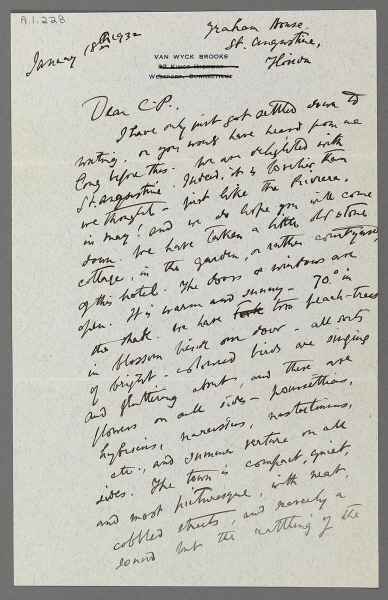 A.1.228
January 18th 1932
Graham House
St. Augustine,
Florida
VAN WYCK BROOKS
KINGS HIGHWAY
WESTPORT, CONNECTICUT
Dear C-P.,
I have only just got settled down to
writing, or you would have heard from me
long before this. We are delighted with
St. Augustine. Indeed, it is lovelier than
we thought - just like the Riviera,
in May! and we do hope you will come
down. We have taken a little old stone
cottage, in the garden, or rather courtyard
of this hotel. The doors & windows are
open. It is warm and sunny - 70° in
the shade. We have two peach-trees
in blossom beside our door - all sorts
of bright-coloured birds are singing
and fluttering about, and there are
flowers on all sides - poinsettias,
hybiscus, narcissus, nasturtiums,
etc., and summer verdure on all
sides. The town is compact, quiet,
and most picturesque, with neat,
cobbled streets, and scarcely a
sound but the rattling of the